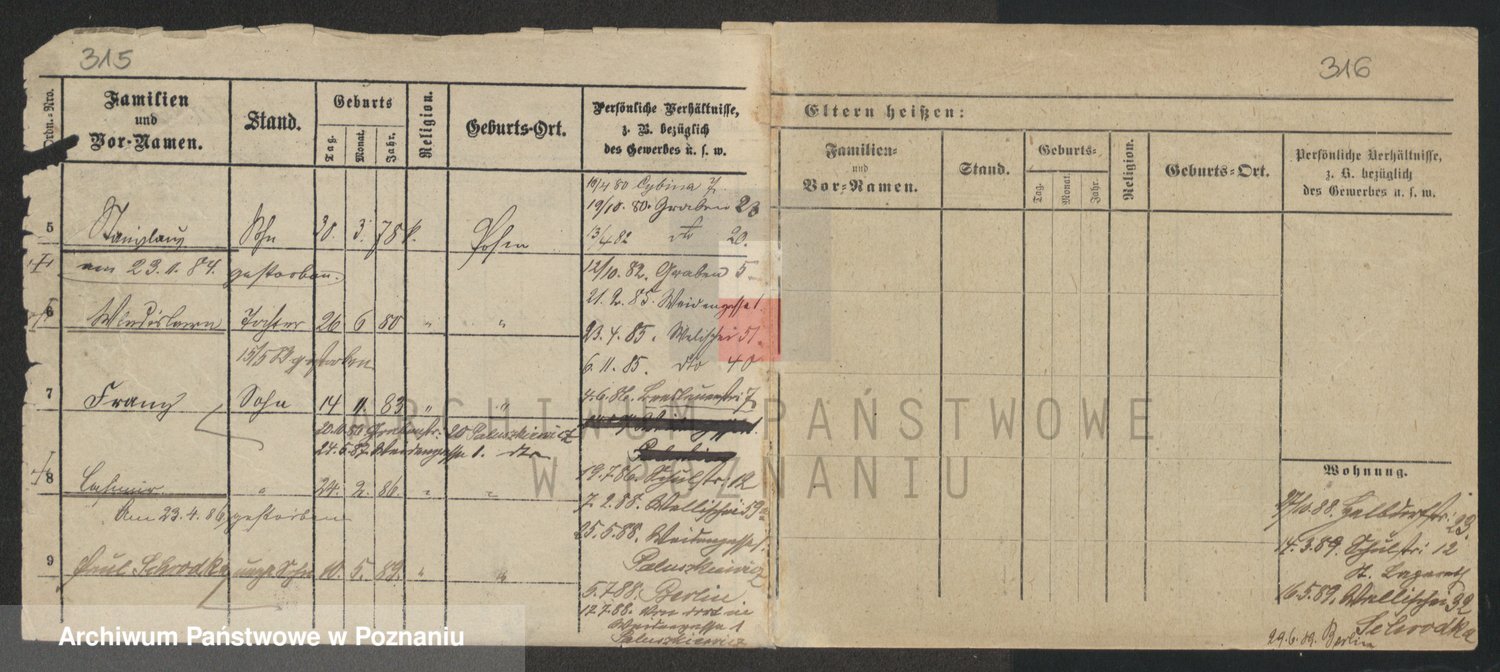 315
316
Ordn.-Nro.
Familien und Vor-Namen.
Stand.
Geburts
Tag. Monat. Jahr.
Religion.
Geburts-Ort.
Persönliche Verhältnisse, z. B. bezüglich des Gewerbes u. s. w.
Eltern heißen:
Familien- und Vor-Namen.
Stand.
Geburts-
Tag. Monat. Jahr.
Religion.
Geburts-Ort.
Persönliche Verhältnisse, z. B. bezüglich des Gewerbes u. s. w.
5 Stanislaus Sohn 30. 3. 78 k. Posen
am 23.11.84. gestorben.
6 Wladislawa Tochter 26 6 80 " "
gestorben
7 Franz Sohn 14 11. 83 " "
Grabenstr. 20 Paluszkiewicz
24.5.87. Weidengasse 1. dto
8 Casimir " 24. 2. 86 " "
Am 23.4.86 gestorben
9 Paul Schrodka unehl. Sohn 10. 5. 89. " "
19/4 80 Cybina 7.
19/10. 80. Graben 23
13/4 82 dto 20.
12/10. 82. Graben 5
21.2.85. Weidengasse 1.
23.4.85. Wallischei 51.
6.11.85. dto 40
4.6.86. Breslauerstr. 7
19.7.86. Schulstr. 12
7.2.88. Wallischei 59a
25.5.88. Weidengasse 1.
Paluszkiewicz
5.7.88. Berlin
17.7.88. von dort in
Weidengasse 1
Paluszkiewicz
Wohnung.
14.3.89. Schulstr. 12
St. Lazareth
16.5.89. Wallischei 32
Schrodka
29.6.89. Berlin
ARCHIWUM PAŃSTWOWE
W POZNANIU
Archiwum Państwowe w Poznaniu